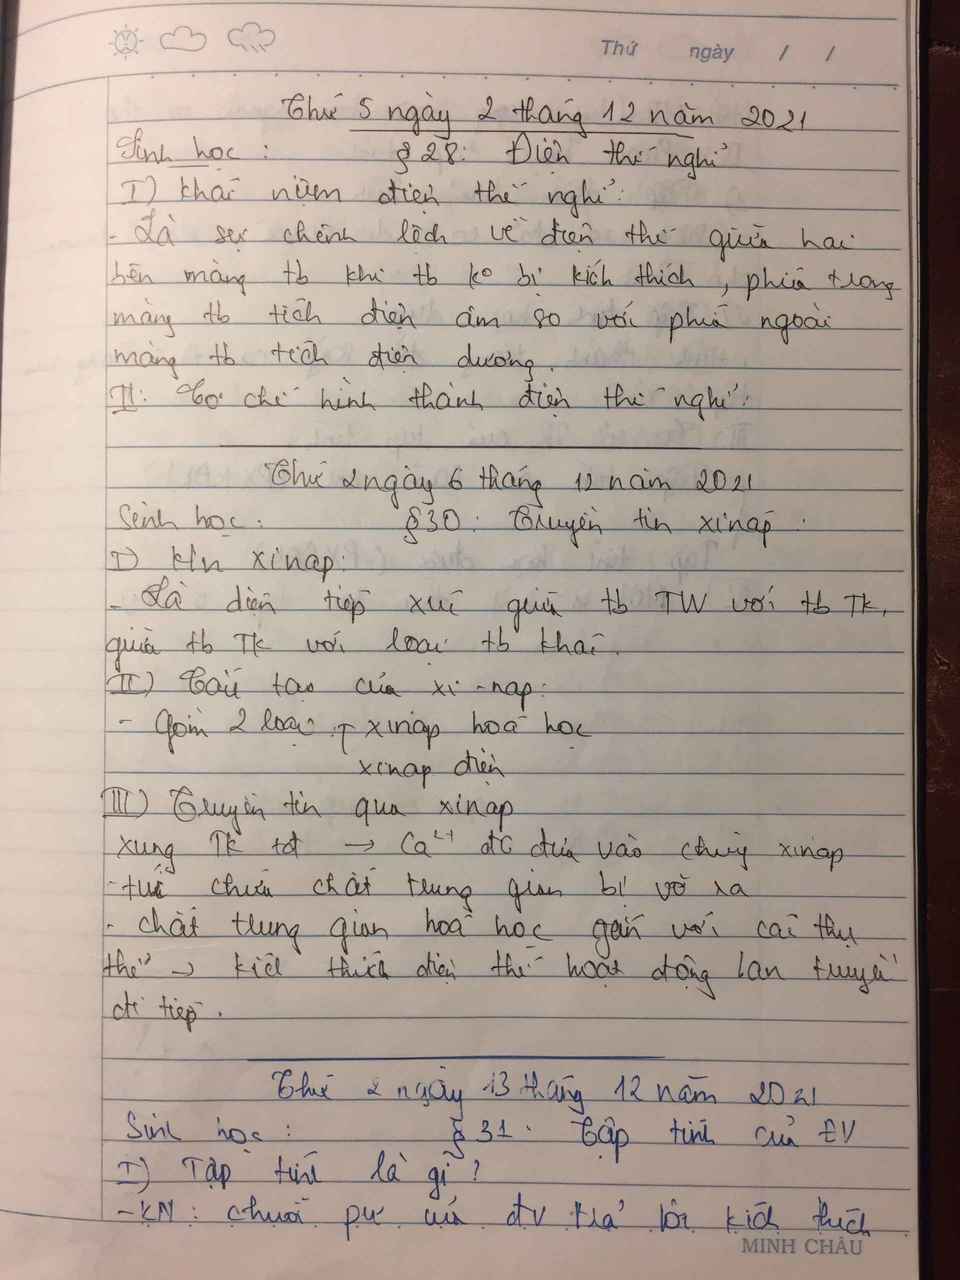 Thứ ngày / /
Thứ 5 ngày 2 tháng 12 năm 2021
Sinh học : § 28: Điện thế nghỉ
I) Khái niệm điện thế nghỉ:
- Là sự chênh lệch về điện thế giữa hai
bên màng tb khi tb ko bị kích thích, phía trong
màng tb tích điện âm so với phía ngoài
màng tb tích điện dương.
II: Cơ chế hình thành điện thế nghỉ:
Thứ 2 ngày 6 tháng 12 năm 2021
Sinh học: § 30: Truyền tin xináp.
I) KN xináp:
- Là diện tiếp xúc giữa tb TW với tb TK,
giữa tb TK với loại tb khác.
II) Cấu tạo của xi-nap:
- Gồm 2 loại xináp hoá học
xináp điện
III) Truyền tin qua xináp
xung TK tđ → Ca²⁺ đc đưa vào chùy xináp
- túi chứa chất trung gian bị vỡ ra
- chất trung gian hoá học gắn với cái thụ
thể → kích thích điện thế hoạt động lan truyền
đi tiếp.
Thứ 2 ngày 13 tháng 12 năm 2021
Sinh học: § 31. Tập tính của ĐV
I) Tập tính là gì?
- KN: chuỗi pư của đv trả lời kích thích
MINH CHÂU